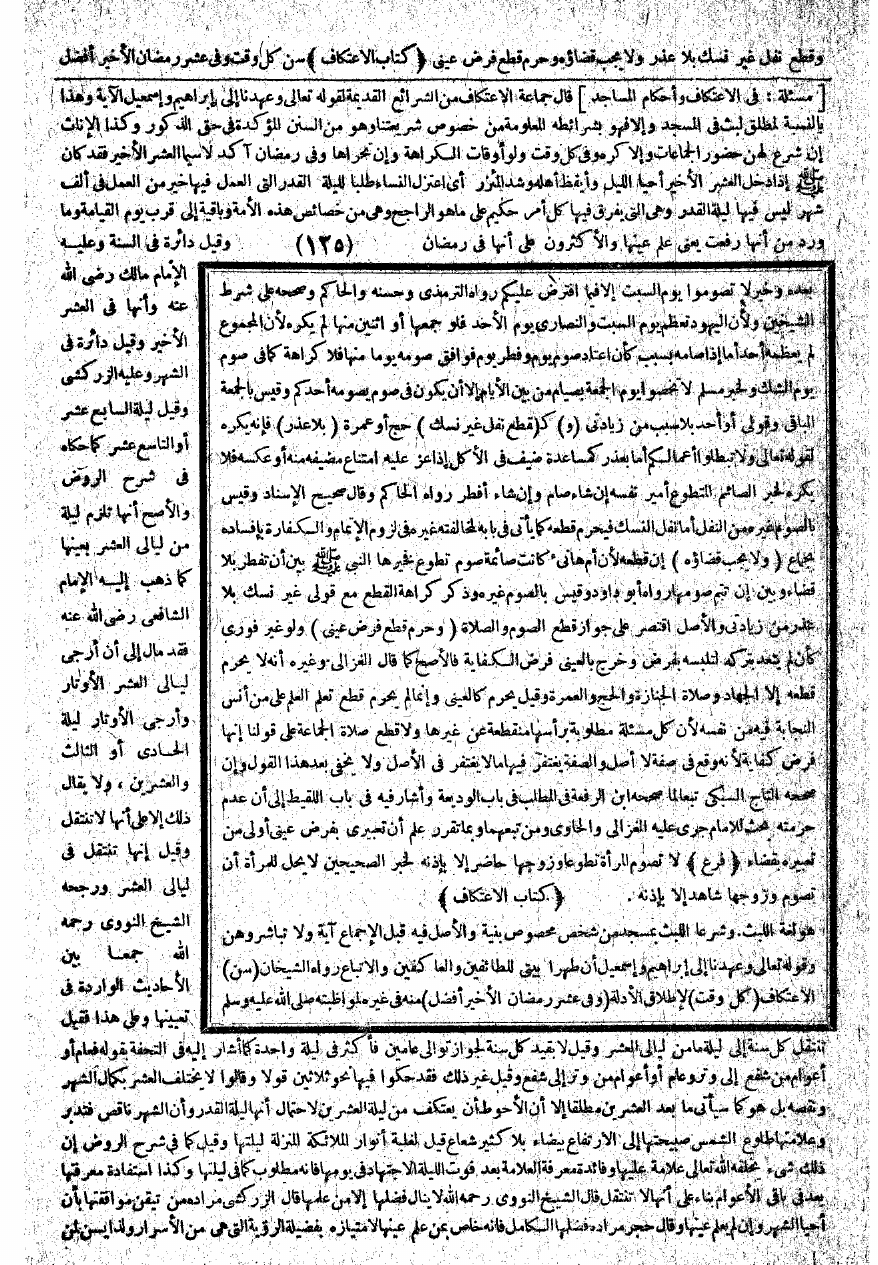 وقطع نفل غير نسك بلا عذر ولا يجب قضاؤه وحرم قطع فرض عيني ﴿ كتاب الاعتكاف ﴾ سن كل وقت وفى عشر رمضان الأخير أفضل
[ مسئلة : فى الاعتكاف وأحكام المساجد ] قال جماعة الاعتكاف من الشرائع القديمة لقوله تعالى وعهدنا إلى إبراهيم وإسمعيل الآية وهذا
بالنسبة لمطلق لبث فى المسجد وإلا فهو بشرائطه المعلومة من خصوص شريعتنا وهو من السنن المؤكدة فى حق الذكور وكذا الإناث
إن شرع لهن حضور الجماعات وإلا كره وفى كل وقت ولو أوقات الكراهة وإن تحراها وفى رمضان آكد لا سيما العشر الأخير فقد كان
ﷺ إذا دخل العشر الأخير أحيا الليل وأيقظ أهله وشد المئزر أى اعتزل النساء طلبا لليلة القدر التى العمل فيها خير من العمل فى ألف
شهر ليس فيها ليلة القدر وهى التى يفرق فيها كل أمر حكيم على ما هو الراجح وهى من خصائص هذه الأمة وباقية إلى قرب يوم القيامة وما
ورد من أنها رفعت يعنى علم عينها والأكثرون على أنها فى رمضان (١٢٥) وقيل دائرة فى السنة وعليه
الإمام مالك رضى الله
عنه وأنها فى العشر
الأخير وقيل دائرة فى
الشهر وعليه الزركشى
وقيل ليلة السابع عشر
أو التاسع عشر كما حكاه
فى شرح الروض
والأصح أنها تلزم ليلة
من ليالى العشر بعينها
كما ذهب إليه الإمام
الشافعى رضى الله عنه
فقد مال إلى أن أرجى
ليالى العشر الأوتار
وأرجى الأوتار ليلة
الحادى أو الثالث
والعشرين ، ولا يقال
ذلك إلا على أنها لا تنتقل
وقيل إنها تنتقل فى
ليالى العشر ورجحه
الشيخ النووى رحمه
الله جمعا بين
الأحاديث الواردة فى
تعيينها وعلى هذا فقيل
بعده وخبر لا تصوموا يوم السبت إلا فيما افترض عليكم رواه الترمذى وحسنه والحاكم وصححه على شرط
الشيخين ولأن اليهود تعظم يوم السبت والنصارى يوم الأحد فلو جمعها أو اثنين منها لم يكره لأن المجموع
لم يعظمه أحد أما إذا صامه بسبب كأن اعتاد صوم يوم وفطر يوم فوافق صومه يوما منها فلا كراهة كما فى صوم
يوم الشك ولخبر مسلم لا تخصوا يوم الجمعة بصيام من بين الأيام إلا أن يكون فى صوم يصومه أحدكم وقيس بالجمعة
الباقى وقولى أو أحد بلا سبب من زيادتى (و) كـ(قطع نفل غير نسك ) حج أو عمرة ( بلا عذر ) فإنه يكره
لقوله تعالى ولا تبطلوا أعمالكم أما بعذر كمساعدة ضيف فى الأكل إذا عز عليه امتناع مضيفه منه أو عكسه فلا
يكره لخبر الصائم المتطوع أمير نفسه إن شاء صام وإن شاء أفطر رواه الحاكم وقال صحيح الإسناد وقيس
بالصوم غيره من النفل أما نفل النسك فيحرم قطعه كما يأتى فى بابه لمخالفته غيره فى لزوم الإتمام والكفارة بإفساده
بجماع ( ولا يجب قضاؤه ) إن قطعه لأن أم هانىء كانت صائمة صوم تطوع فخيرها النبى ﷺ بين أن تفطر بلا
قضاء وبين إن تتم صومها رواه أبو داود وقيس بالصوم غيره وذكر كراهة القطع مع قولى غير نسك بلا
عذر من زيادتى والأصل اقتصر على جواز قطع الصوم والصلاة ( وحرم قطع فرض عينى ) ولو غير فورى
كأن لم يتعد بتركه لتلبسه بفرض وخرج بالعينى فرض الكفاية فالأصح كما قال الغزالى وغيره أنه لا يحرم
قطعه إلا الجهاد وصلاة الجنازة والحج والعمرة وقيل يحرم كالعينى وإنما لم يحرم قطع تعلم العلم على من أنس
النجابة فيه من نفسه لأن كل مسئلة مطلوبة برأسها منقطعة عن غيرها ولا قطع صلاة الجماعة على قولنا إنها
فرض كفاية لأنه وقع فى صفة لا أصل والصفة يغتفر فيها ما لا يغتفر فى الأصل ولا يخفى بعد هذا القول وإن
صححه التاج السبكى تبعا لما صححه ابن الرفعة فى المطلب فى باب الوديعة وأشار فيه فى باب اللقيط إلى أن عدم
حرمته بحث للإمام جرى عليه الغزالى والحاوى ومن تبعهما وبما تقرر علم أن تعبيرى بفرض عينى أولى من
تعبيره بقضاء ﴿ فرع ﴾ لا تصوم المرأة تطوعا وزوجها حاضر إلا بإذنه لخبر الصحيحين لا يحل للمرأة أن
تصوم وزوجها شاهد إلا بإذنه . ﴿ كتاب الاعتكاف ﴾
هو لغة اللبث . وشرعا اللبث بمسجد من شخص مخصوص بنية والأصل فيه قبل الإجماع آية ولا تباشروهن
وقوله تعالى وعهدنا إلى إبراهيم وإسمعيل أن طهرا بيتى للطائفين والعاكفين والاتباع رواه الشيخان (سن)
الاعتكاف (كل وقت) لإطلاق الأدلة (وفى عشر رمضان الأخير أفضل) منه فى غيره لمواظبته صلى الله عليه وسلم
تنتقل كل سنة إلى ليلة ما من ليالى العشر وقيل لا بقيد كل سنة لجواز توالى عامين فأكثر فى ليلة واحدة كما أشار إليه فى التحفة بقوله فعام أو
أعوام من شفع إلى وتر وعام أو أعوام من وتر إلى شفع وقيل غير ذلك فقد حكوا فيها نحو ثلاثين قولا وقالوا لا يختلف العشر بكمال الشهر
ونقصه بل هو كما سيأتى ما بعد العشرين مطلقا إلا أن الأحوط أن يعتكف من ليلة العشرين لاحتمال أنها ليلة القدر وأن الشهر ناقص فتدبر
وعلامتها طلوع الشمس صبيحتها إلى الارتفاع بيضاء بلا كثير شعاع قيل لغلبة أنوار الملائكة المنزلة ليلتها وقيل كما فى شرح الروض إن
ذلك شىء يخلقه الله تعالى علامة عليها وفائدة معرفة العلامة بعد فوت الليلة الاجتهاد فى يومها فانه مطلوب كما فى ليلتها وكذا استفادة معرفتها
بعد فى باقى الأعوام بناء على أنها لا تنتقل قال الشيخ النووى رحمه الله لا ينال فضلها إلا من علمها قال الزركشى مراده من تيقن موافقتها بأن
أحيا الشهر وإن لم يعلم عينها وقال حجر مراده فضلها الكامل فانه خاص بمن علم عينها لامتيازه بفضيلة الرؤية التى هى من الأسرار ولذا يسن لمن